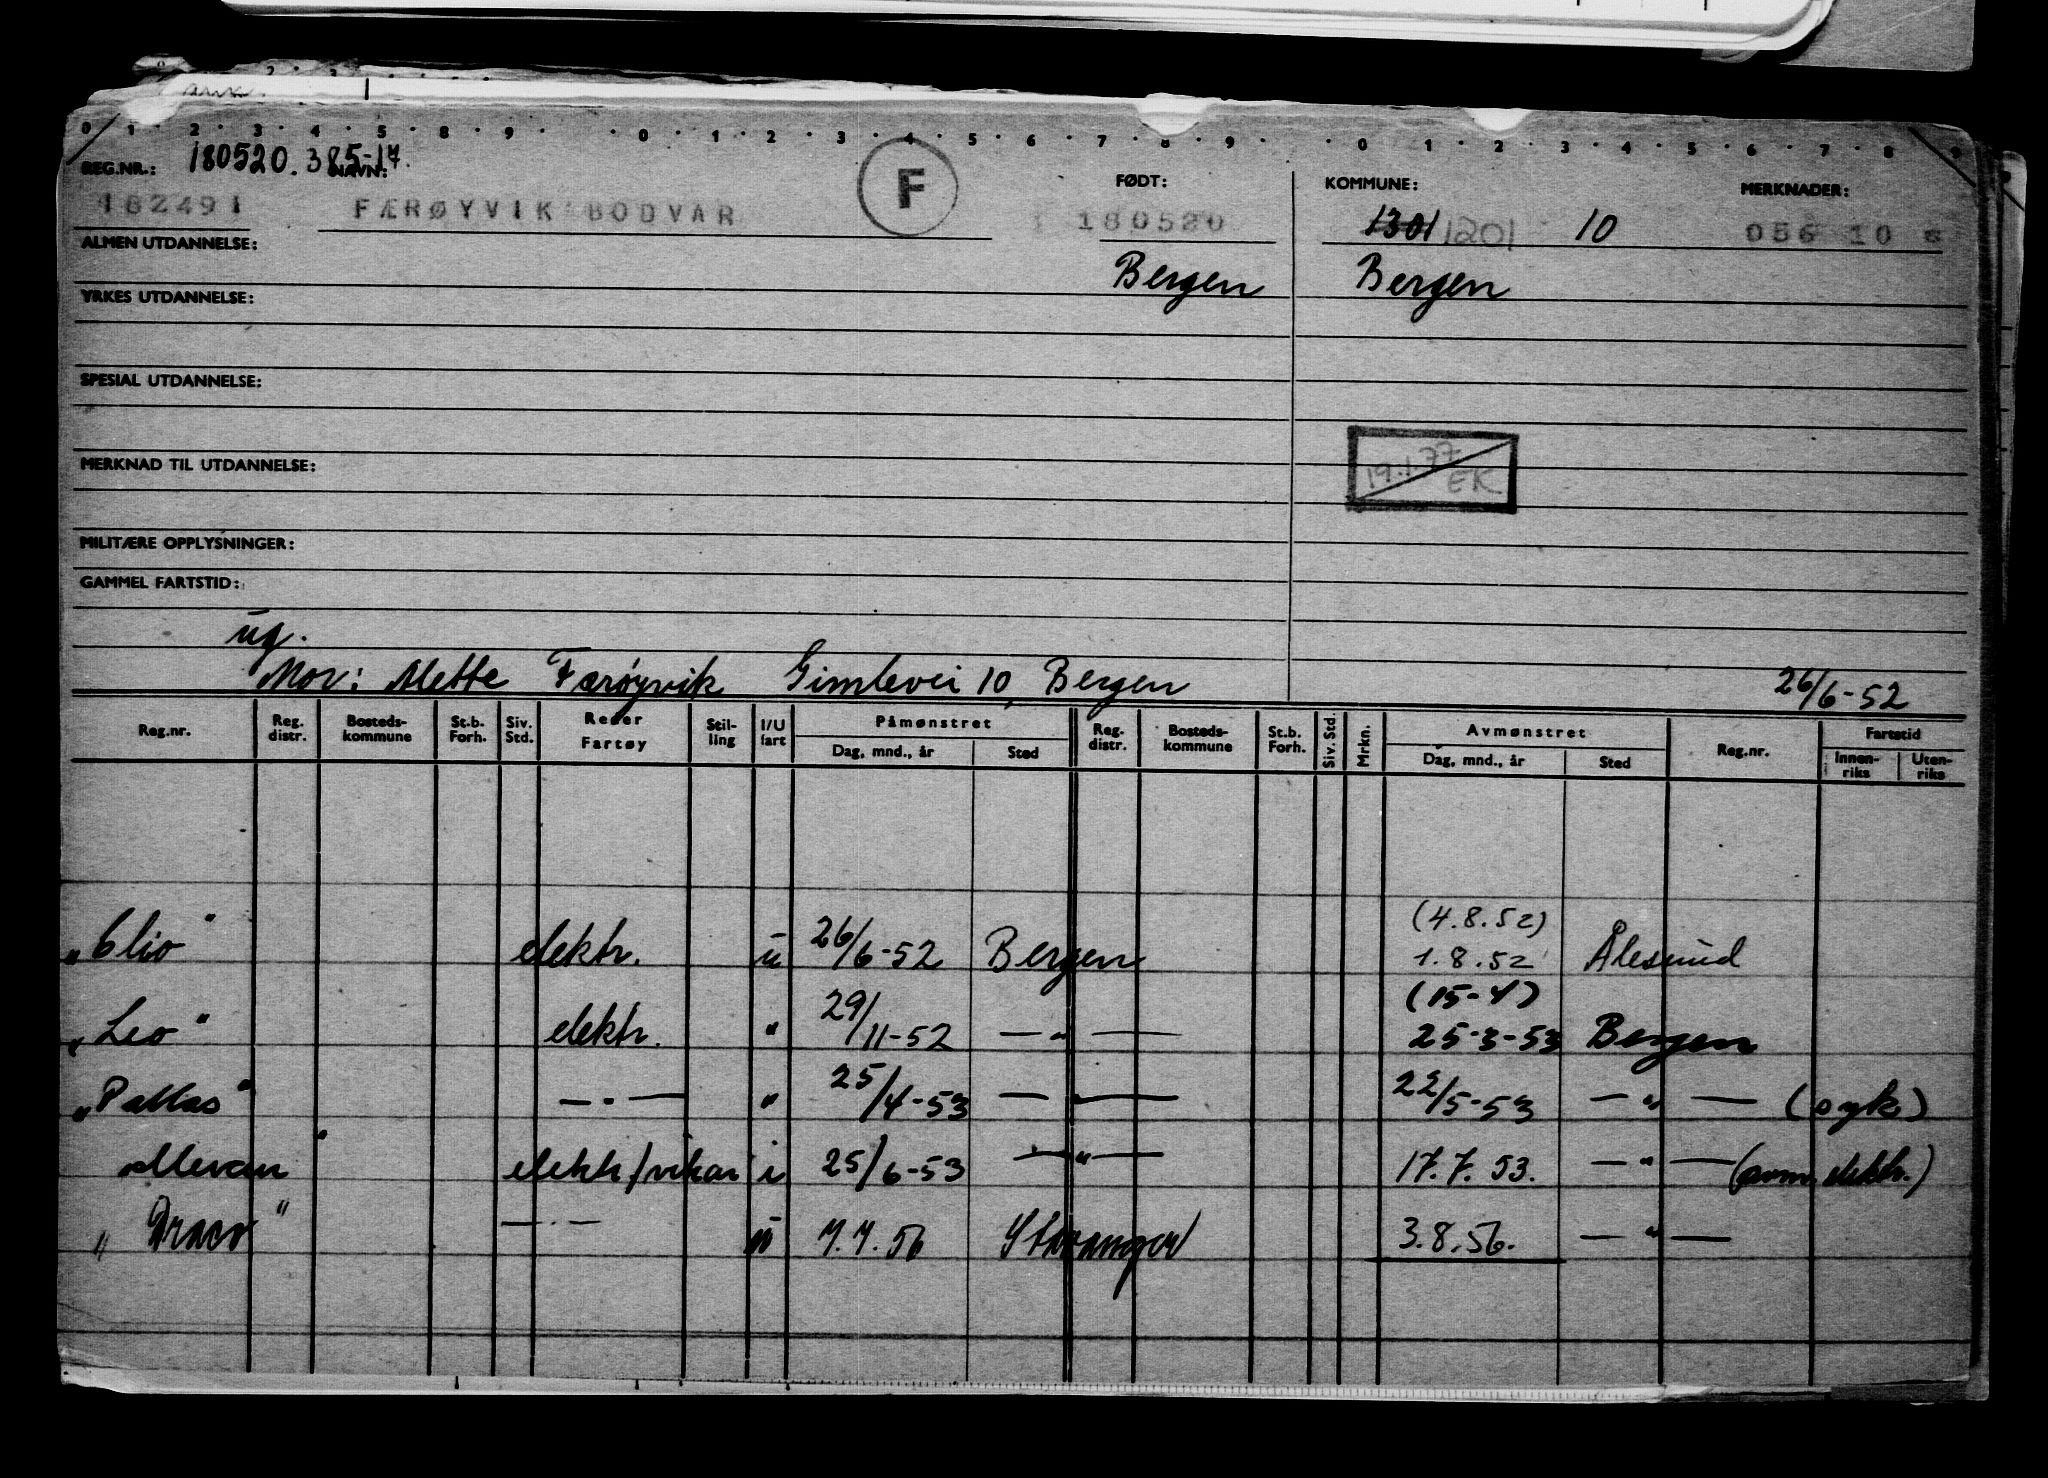 0 1 2 3 4 5 8 9 0 1 2 3 4 5 6 7 8 9 0 1 2 3 4 5 6 7 8 9
REG.NR.: 180520.385-17. NAVN: F FØDT: KOMMUNE: MERKNADER:
182491 FÆRØYVIK BODVAR 180520 1301 1201 10 056 10 6
ALMEN UTDANNELSE: Bergen Bergen
YRKES UTDANNELSE:
SPESIAL UTDANNELSE:
MERKNAD TIL UTDANNELSE: 19.1.77 EK
MILITÆRE OPPLYSNINGER:
GAMMEL FARTSTID:
ug.
Mor: Mette Færøyvik Gimlevei 10, Bergen 26/6-52
Reg.nr. Reg. distr. Bosteds-kommune St.b. Forh. Siv. Std. Reder Fartøy Stil-ling I/U fart Påmønstret Dag, mnd., år Sted Reg. distr. Bosteds-kommune St.b. Forh. Siv. Std. Mrkn. Avmønstret Dag, mnd., år Sted Reg.nr. Fartstid Innen-riks Uten-riks
(4.8.52)
"Clio" elektr. u 26/6-52 Bergen 1.8.52 Ålesund
(15-4)
"Leo" elektr. " 29/11-52 — " — 25-3-53 Bergen
"Pallas" — . — " 25/4-53 — " — 22/5-53 — " — (syk)
Mevan" elektr/vikar i 25/6-53 — " — 17.7.53. — " — (avm. elektr.)
"Draco" — . — u 7.7.56 Stavanger 3.8.56. — " —